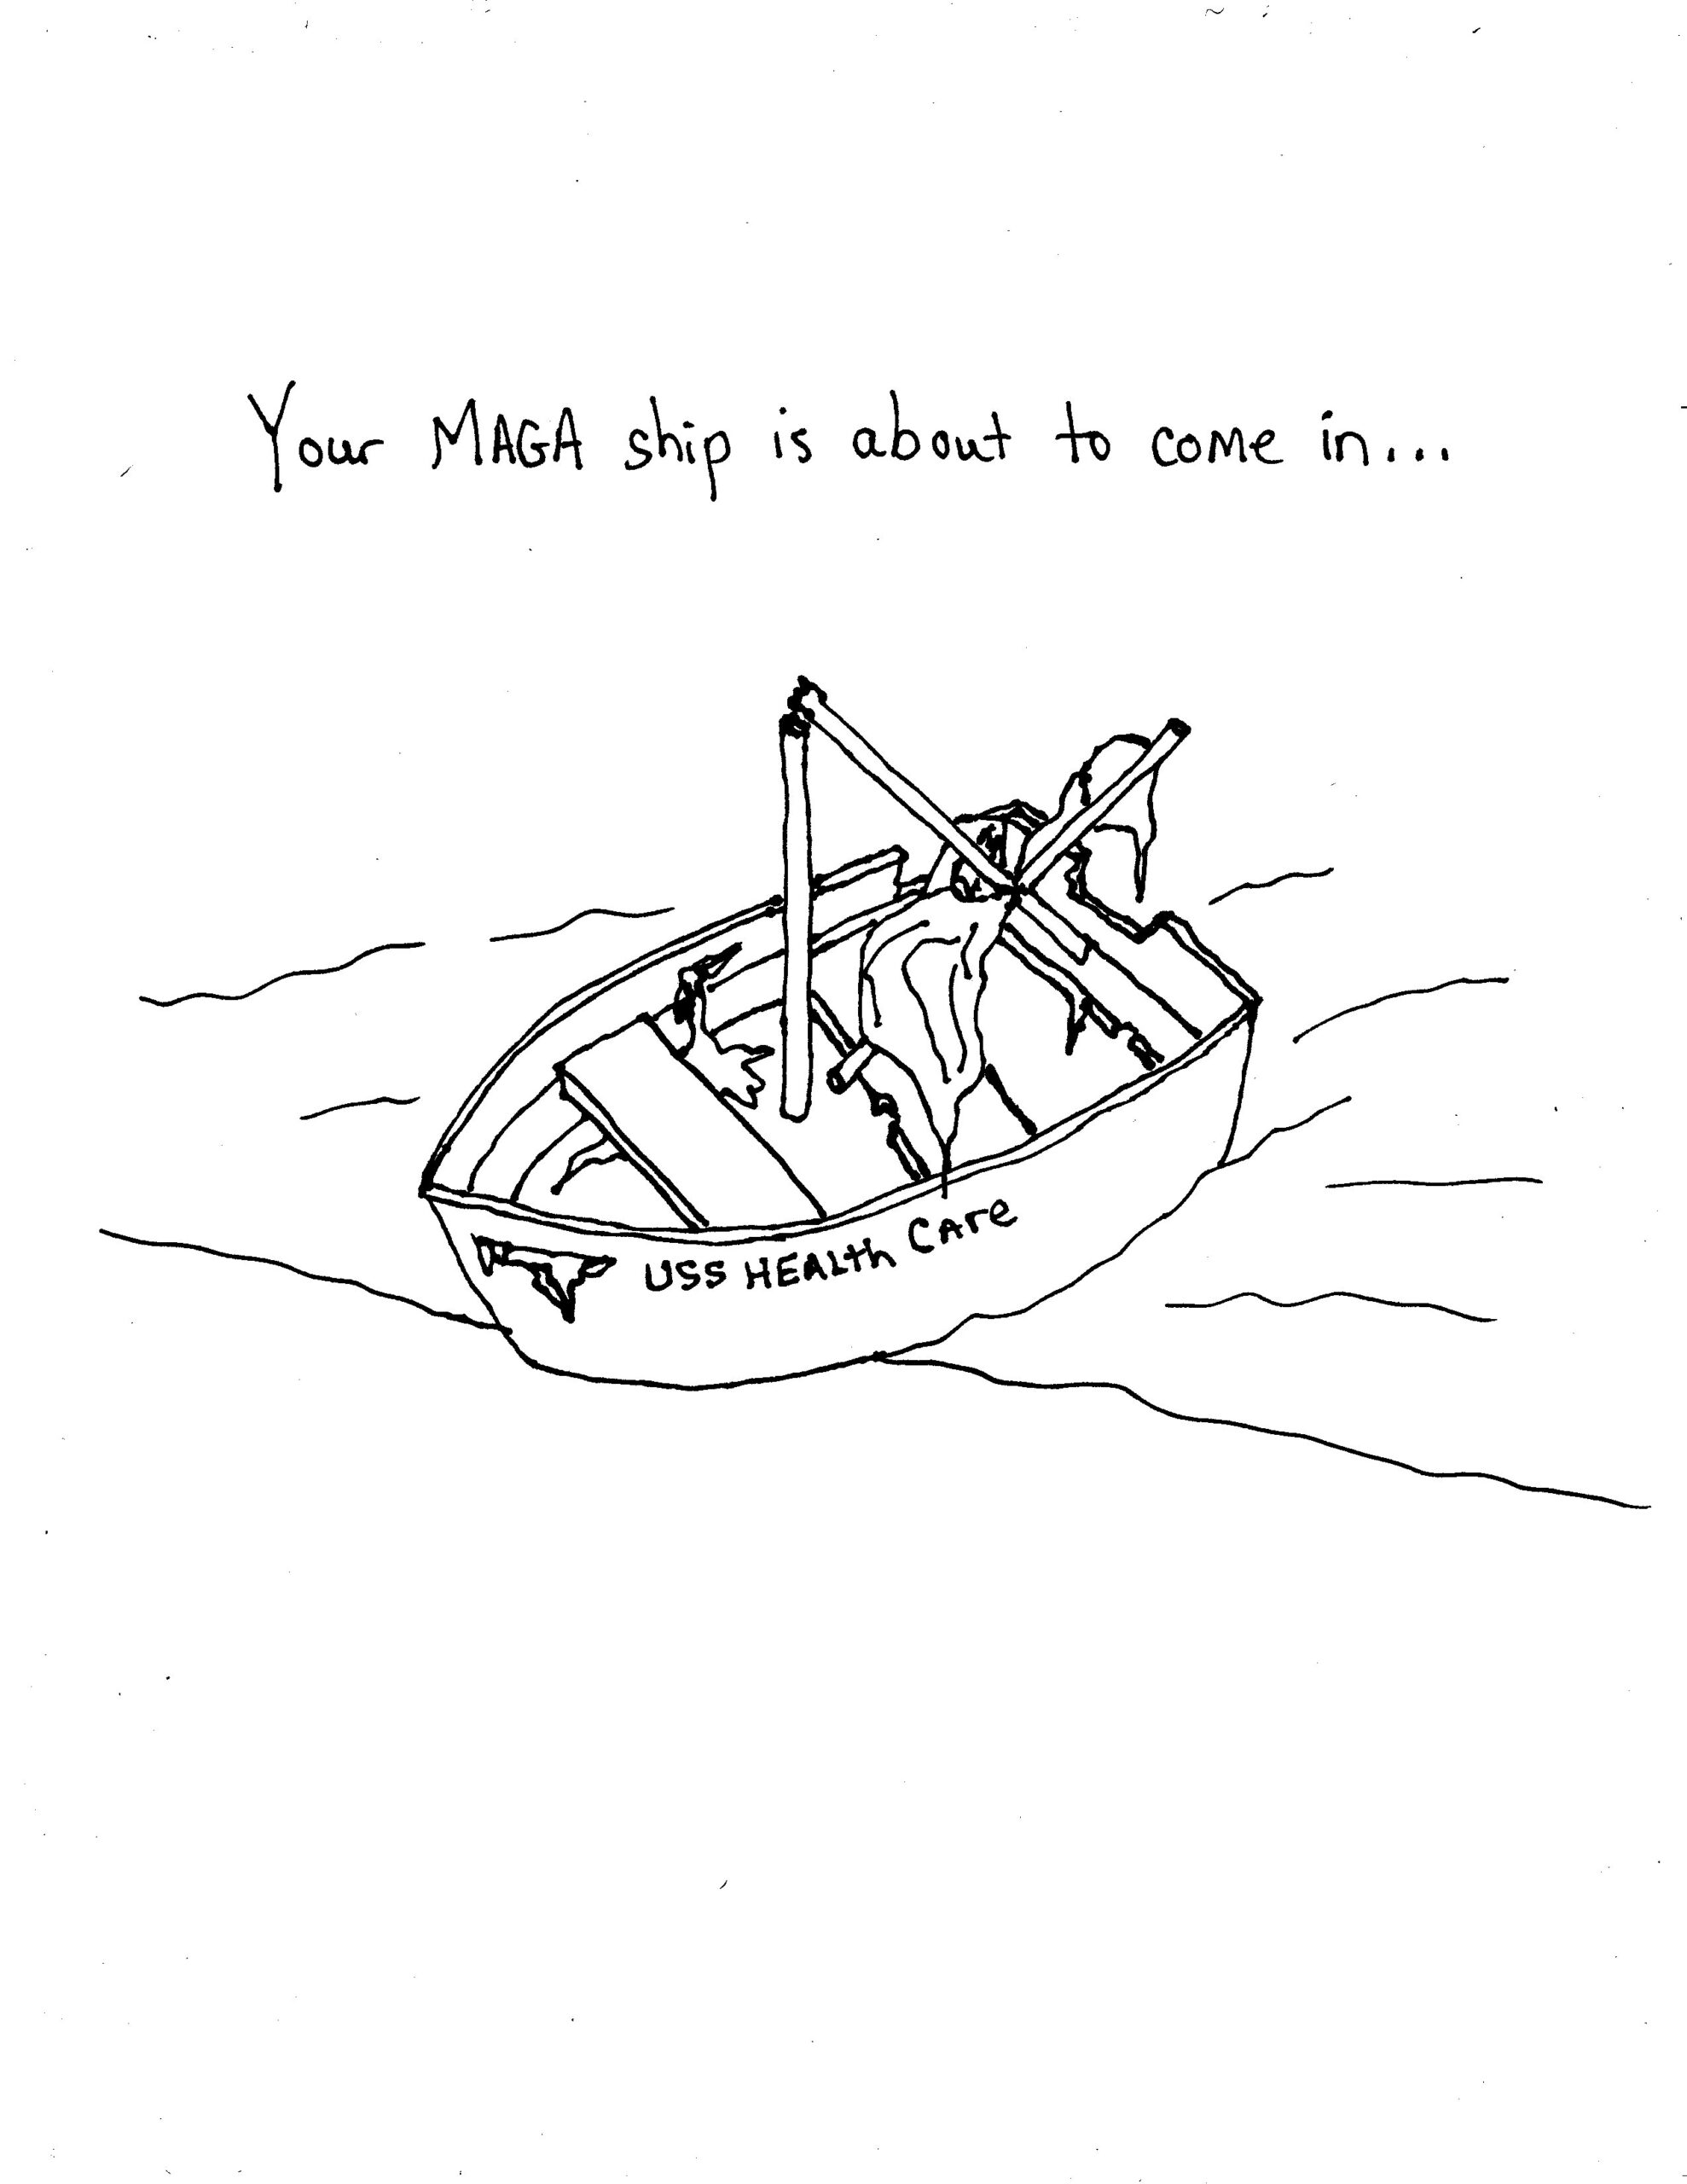 Your MAGA ship is about to come in...
USS HEALth CAre